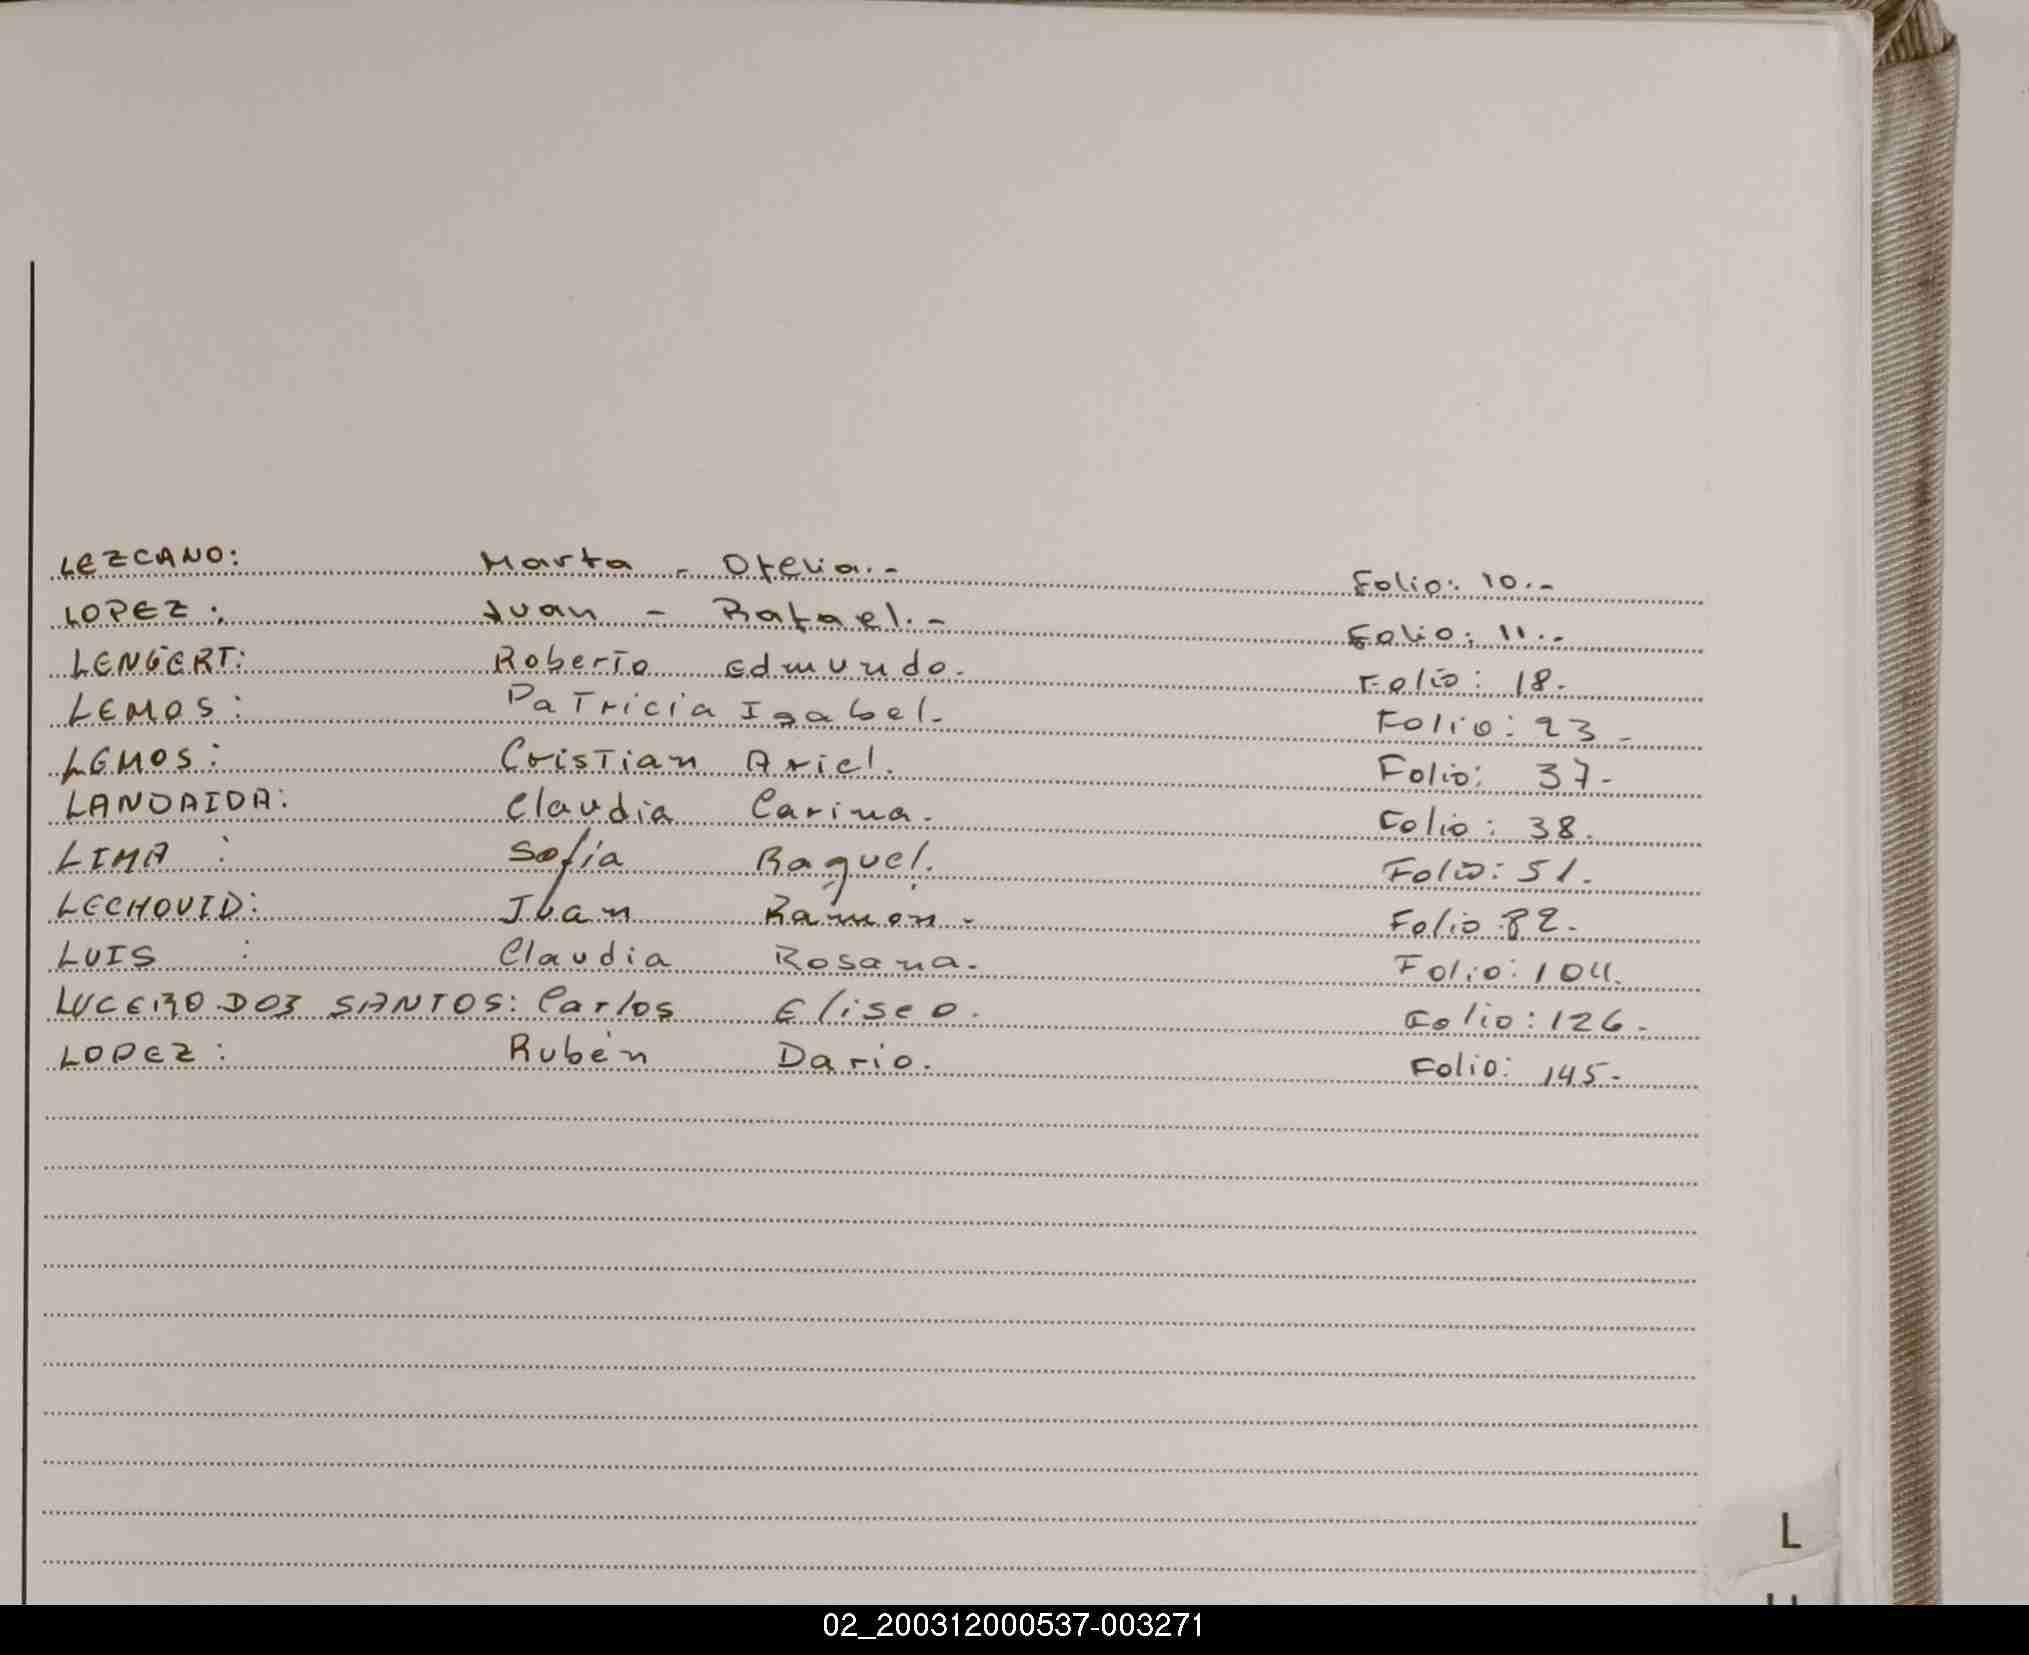 LEZCANO: Marta - Otelia.- Folio: 10.-
LOPEZ: Juan - Rafael.- Folio: 11.-
LENGERT: Roberto Edmundo. Folio: 18.
LEMOS: Patricia Isabel. Folio: 23-
LEMOS: Cristian Ariel. Folio: 37-
LANDAIDA: Claudia Carina. Folio: 38.
LIMA : Sofia Raquel. Folio: 51.
LECHOVID: Juan Ramon- Folio 82.
LUIS : Claudia Rosana. Folio: 104.
LUCERO DOS SANTOS: Carlos Eliseo. Folio: 126.
LOPEZ: Rubén Dario. Folio: 145-
L
02_200312000537-003271